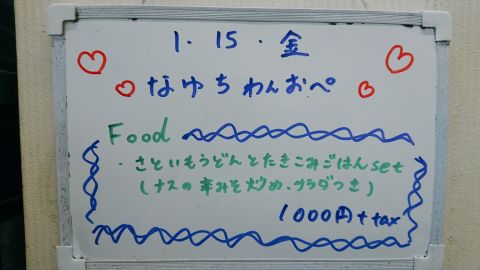 1.15.金
なゆちわんおぺ
Food
・さといもうどんとたきこみごはんset
(ナスの辛みそ炒め、サラダつき)
1000円+tax